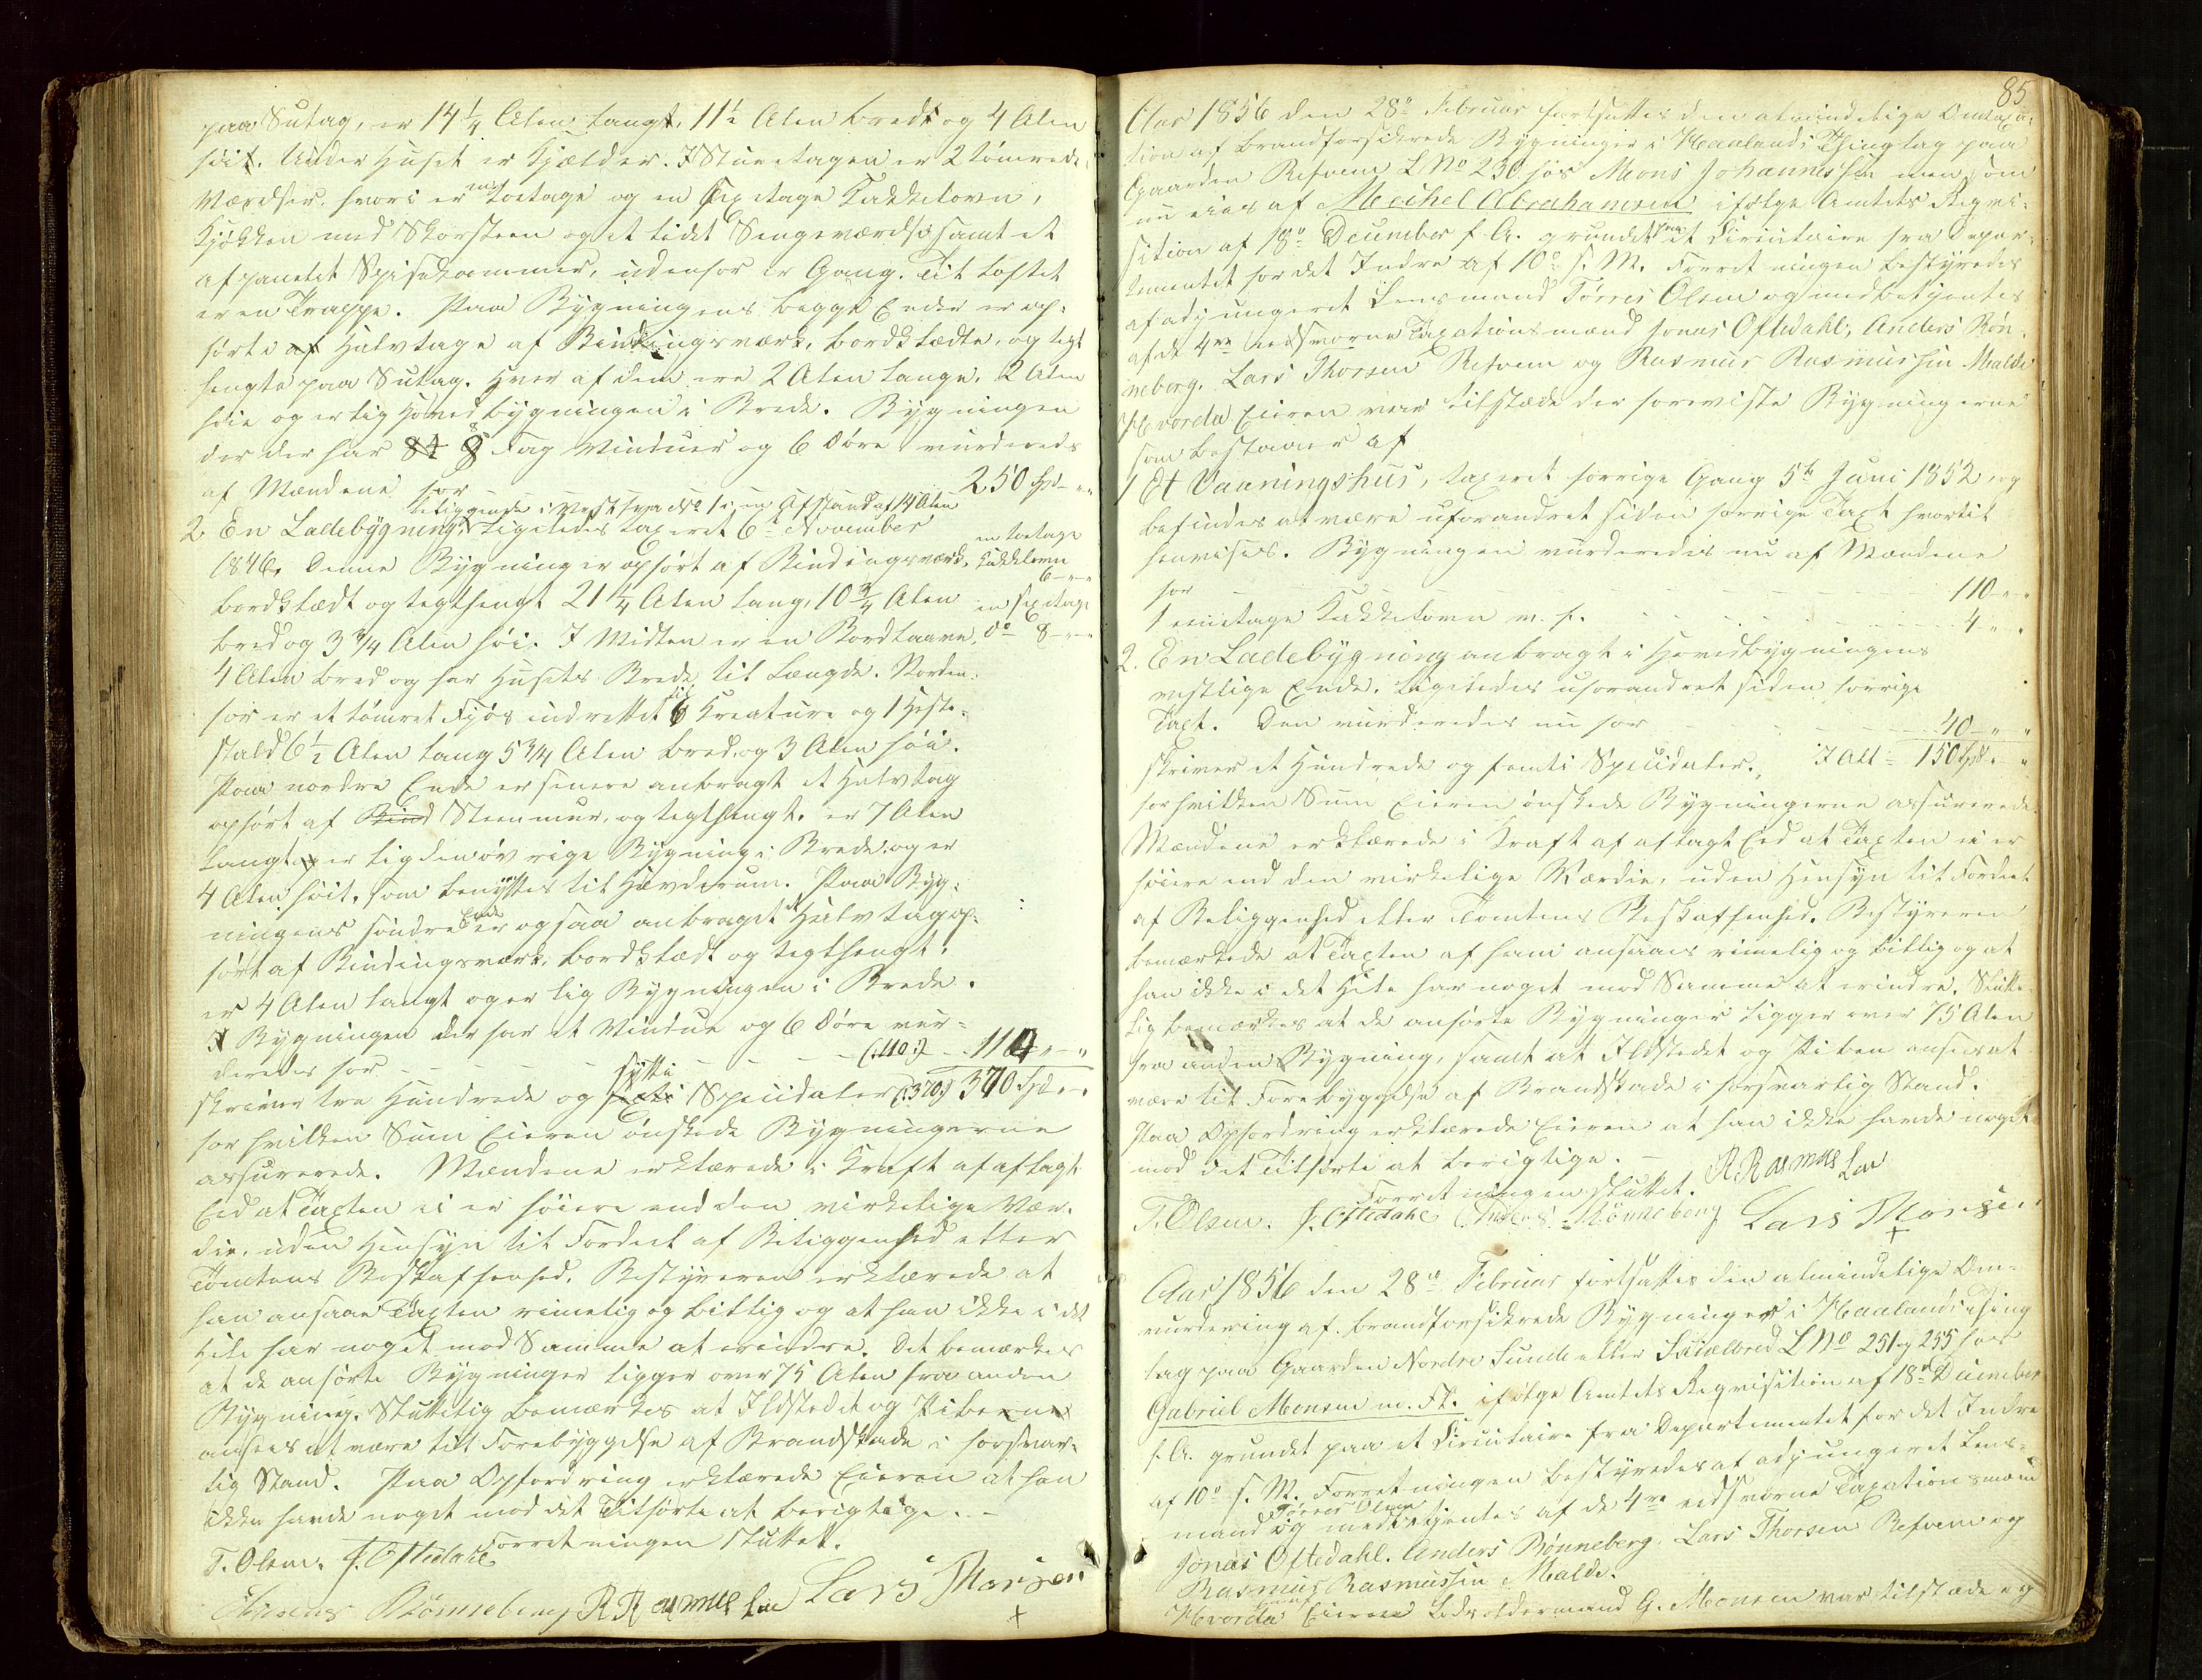 paa Sutag, er 14 1/4 Alen langt, 11 1/2 Alen bredt og 4 Alen
høit. Under Huset er Kjælder. I Stueetagen er 2 tømrede
Værelser, hvori er en toetage og en sexetage Kakkelovn,
Kjøkken med Skorsteen og et lidet Sengeværelse samt et
afpanelet Spisekammer, udenfor er Gang. Til Loftet
er en Trappe. Paa Bygningens begge Ender er op-
førte af Halvtage af Bindingsværk, bordklædte, og tegl
hengte paa Sutag. Hver af dem ere 2 Alen lange, 2 Alen
høie og er lig Hovedbygningen i Brede. Bygningen
der der har 8 Fag Vinduer og 6 Døre vurderedes
af Mændene for 250 Spd - "
beliggende i Vest fra No 1 i en Afstand af 14 Alen
2. En Ladebygning, Ligeledes taxeret 6te November
1846. Denne Bygning er opført af Bindingsværk, en toetage Kakkelovn 6 - " - "
bordklædt og teglhengt 21 1/4 Alen lang, 10 3/4 Alen en sexetage
bred og 3 3/4 Alen høi. I Midten er en Bordlaave, do 8 - " - "
4 Alen bred og har Husets Brede til Længde. Norden-
for er et tømret Fjøs indrettet til 6 Kreature og 1 Heste-
stald 6 1/2 Alen lang 5 3/4 Alen bred, og 3 Alen høi.
Paa nordre Ende er senere anbragt et Halvtag
opført af Bind Steenmur, og teglhengt. er 7 Alen
langt og er lig den øvrige Bygning i Brede, og er
4 Alen høit, som benyttes til Høvderum. Paa Byg-
ningens søndre Ende er ogsaa anbraget et Halvtag op-
ført af Bindingsværk, bordklædt og teglhengt.
er 4 Alen langt og er lig Bygningen i Brede.
Bygningen der har et Vindue og 6 Døre vur-
deredes for - - - - - (:110:) - - 110 " - "
skriver tre Hundrede og sexti sytti Speciedaler (:370:) 370 Spd " - "
for hvilken Sum Eieren ønskede Bygningerne
assurerede. Mændene erklærede i Kraft af aflagt
Eed at Taxten ei er høiere end den virkelige Vær-
die, uden Hensyn til Fordeel af Beliggenhed eller
Tomtens Beskaffenhed. Bestyreren erklærede at
han ansaae Taxten rimelig og billig og at han ikke i det
Hele har noget mod Samme at erindre. Det bemærkes
at de anførte Bygninger ligger over 75 Alen fra anden
Bygning. Sluttelig bemærkes at Ildstedet og Piberne
ansees at være til Forebyggelse af Brandskade i forsvar-
lig Stand. Paa Opfordring erklærede Eieren at han
ikke havde noget mod det Tilførte at berigtige. -
Forretningen sluttet.
T. Olsen. J. Oftedahl
Anders Rønneberg R Rasmussen Lars Thorsen
+
85
Aar 1856 den 28de Februar fortsattes den almindelige Omtaxa-
tion af brandforsikrede Bygninger i Haalands Thinglag paa
Gaarden Refvem L No 230 hos Mons Johannessen men som
nu eies af Meichel Abrahamsen ifølge Amtets Reqvi-
sition af 18de December f. A. grundet paa et Circulaire fra Depar-
tementet for det Indre af 10de s. M. Forretningen bestyredes
af adjungeret Lensmand Tørres Olsen og medbetjentes
af de 4re eedsvorne Taxationsmænd Jonas Oftedahl, Anders Røn-
neberg, Lars Thorsen Refvem og Rasmus Rasmussen Malde
Hvorda Eieren var tilstæde der foreviste Bygningerne
som bestaaer af
1 Et Vaaningshus, taxeret forrige Gang 5te Juni 1852, og
befindes at være uforandret siden forrige Taxt hvortil
henvises. Bygningen vurderedes nu af Mændene
for - - - - - 110 - " - "
1 enetage Kakkelovn m. f. - - - - - 4 - " - "
2. En Ladebygning anbragt i Hovedbygningens
vestlige Ende. Ligeledes uforandret siden forrige
Taxt. Den vurderedes nu for - - - - - 40 - " - "
skriver et Hundrede og femti Speciedaler., I Alt = 150 Spd. - "
for hvilken Sum Eieren ønskede Bygningerne assurerede.
Mændene erklærede i Kraft af aflagt Eed at Taxten ei er
høiere end den virkelige Værdie, uden Hensyn til Fordeel
af Beliggenhed eller Tomtens Beskaffenhed. Bestyreren
bemærkede at Taxten af ham ansaaes rimelig og billig og at
han ikke i det Hele har noget mod Samme at erindre. Slutte-
lig bemærkes at de anførte Bygninger ligger over 75 Alen
fra anden Bygning, samt at Ildstedet og Piben ansees at
være til Forebyggelse af Brandskade i forsvarlig Stand.
Paa Opfordring erklærede Eieren at han ikke havde noget
mod det Tilførte at berigtige. -
Forretningen sluttet. R Rasmussen
T. Olsen. J. Oftedahl Anders Rønneberg Lars Thorsen
+
Aar 1856 den 28de Februar fortsattes den almindelige Om-
vurdering af brandforsikrede Bygninger i Haalands Thing
lag paa Gaarden Nordre Sunde eller L No 251 og 255 hos
Gabriel Monsen m. Fl. ifølge Amtets Reqvisition af 18de December
f. A. grundet paa et Circulaire fra Departementet for det Indre
af 10de s. M. Forretningen bestyredes af adjungeret Lens-
mand Tørres Olsen og medbetjentes af de 4re eedsvorne Taxationsmænd
Jonas Oftedahl. Anders Rønneberg, Lars Thorsen Refvem og
Rasmus Rasmussen Malde.
Hvorda Eieren G. Monsen var tilstæde og